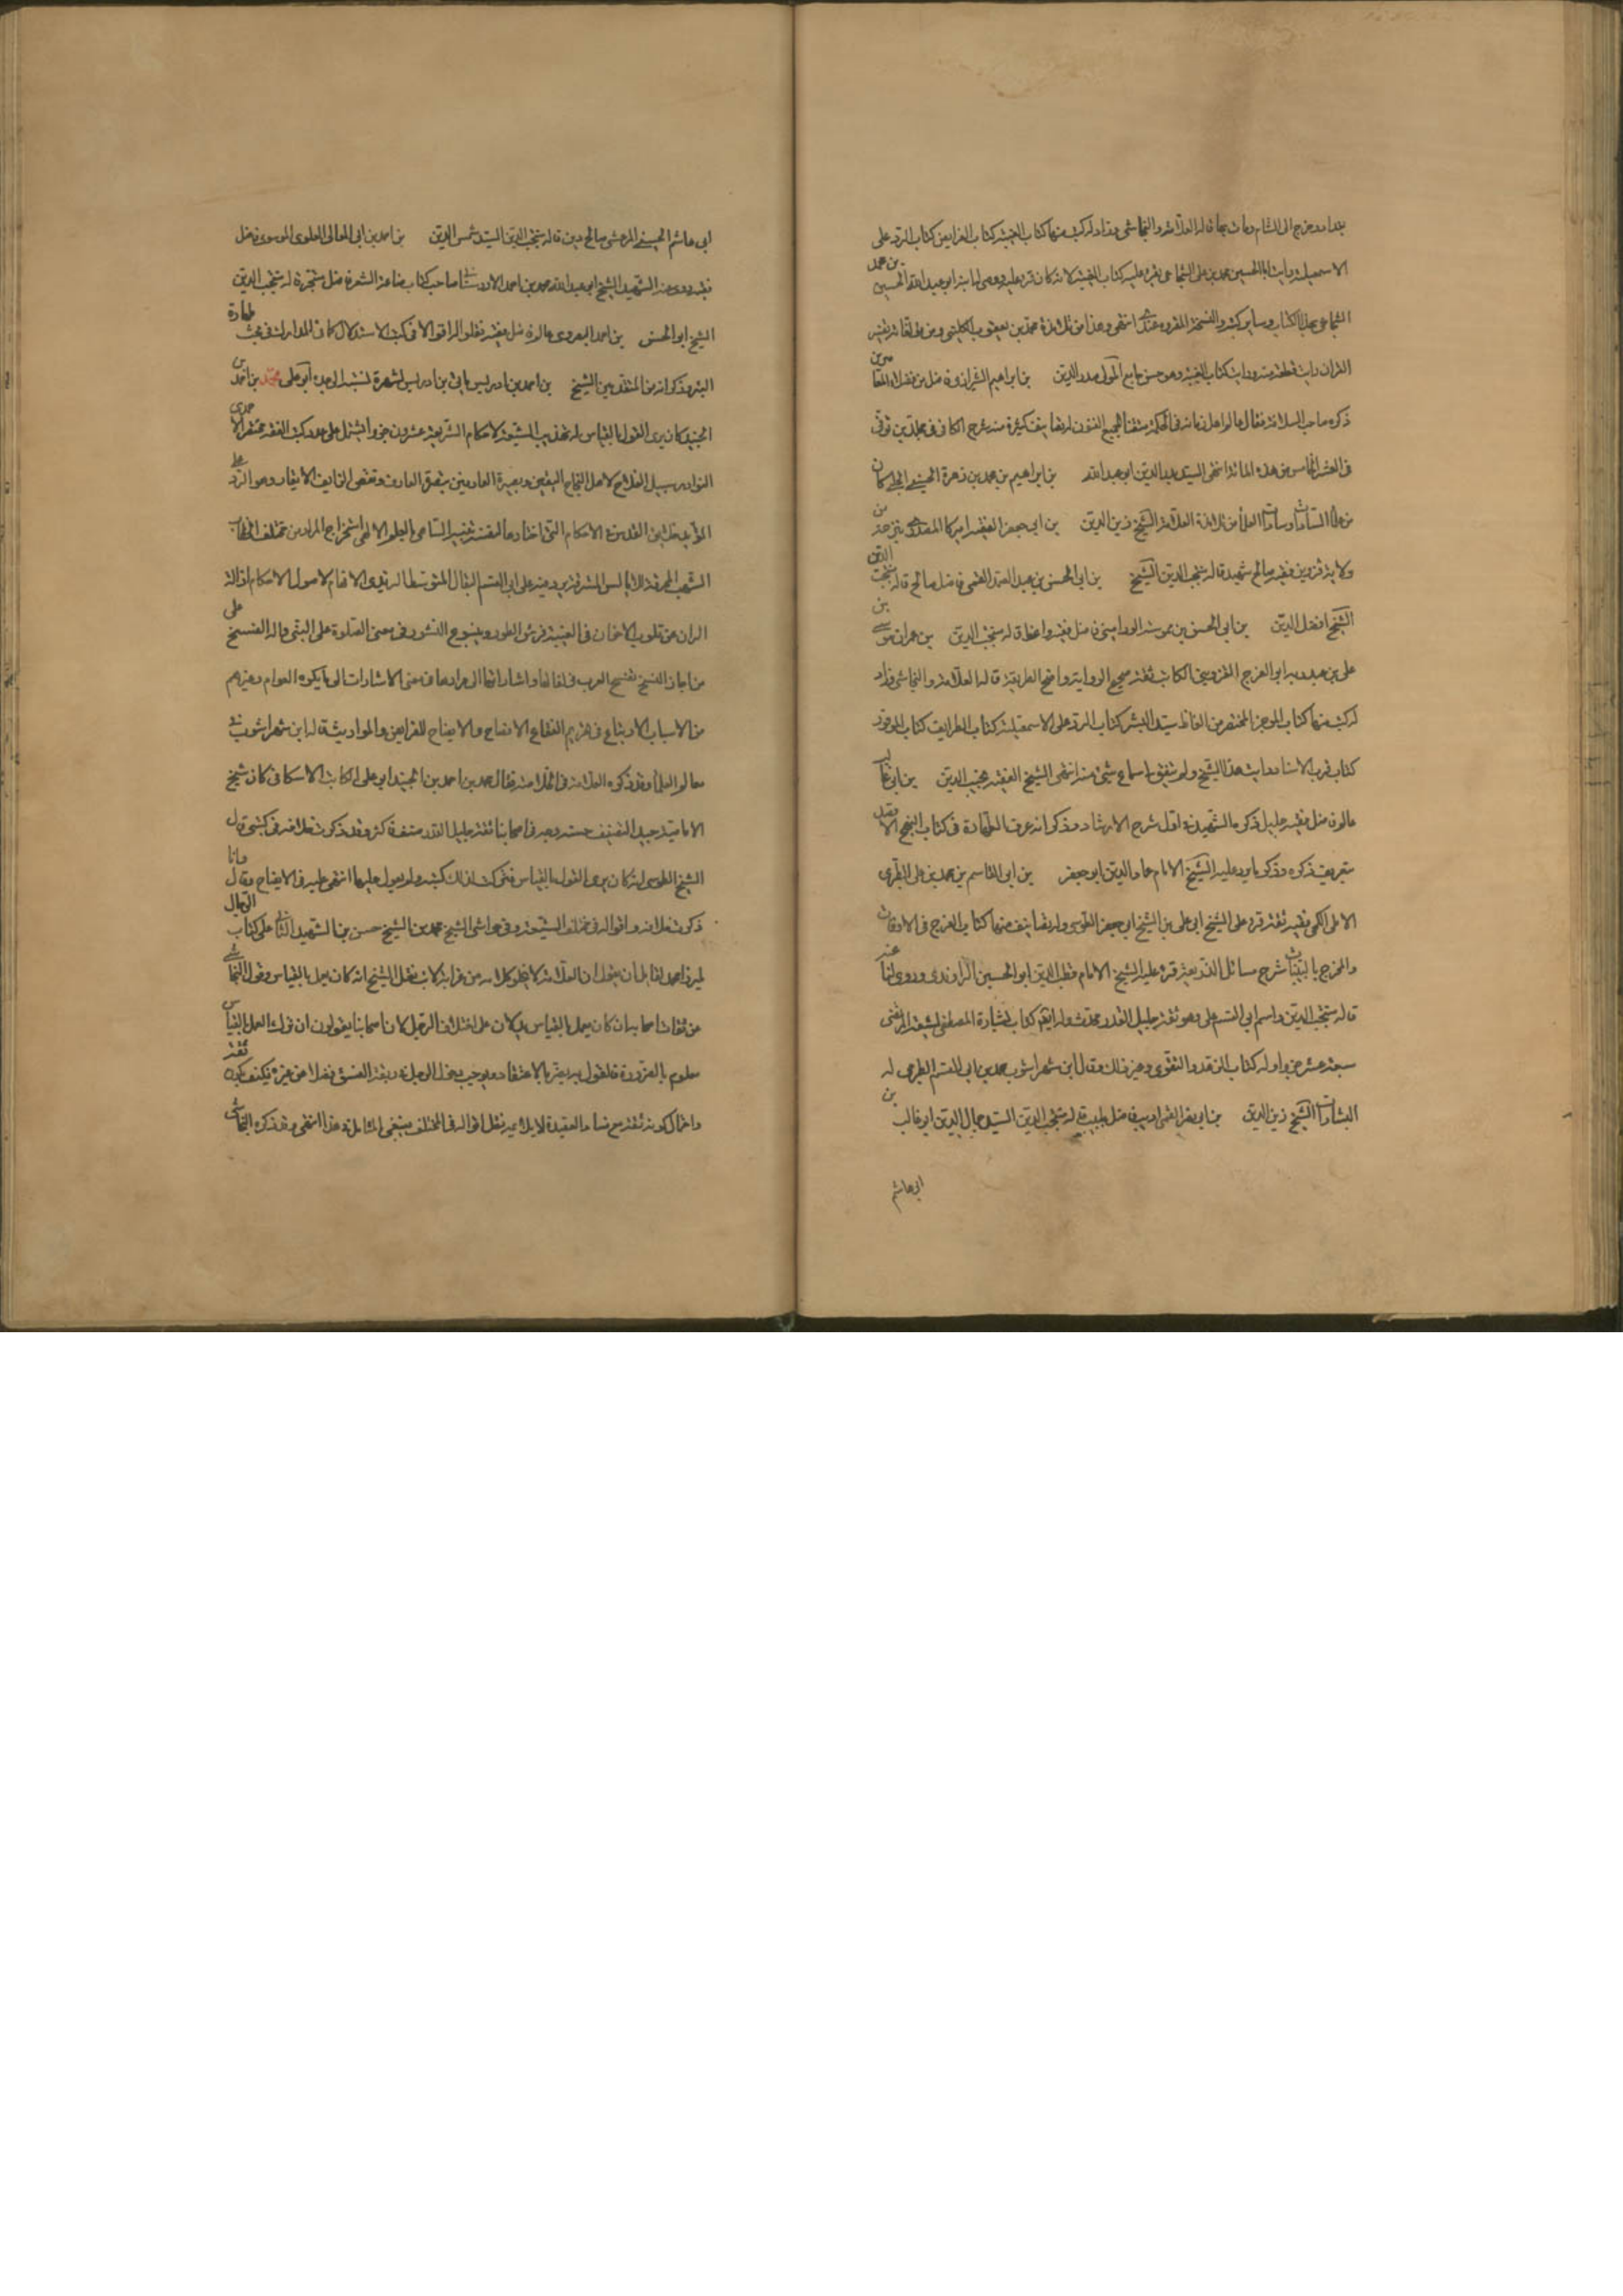 بغداد وخرج الى الشام ومات بها قاله العلامة والنجاشي وزاد له كتب منها كتاب الغيبة كتاب الفرايض كتاب الرد على
الاسمعيلية رايت ابا الحسين محمد بن على الشجاعى يقرء عليه كتاب الغيبة لانه كان قرءه عليه ووصى لى ابنه ابو عبد الله الحسين بن محمد
الشجاعى بهذا الكتاب وساير كتبه والنسخة المقروة عندى انتهى وهذا من تلامذة محمد بن يعقوب الكلينى ومن مؤلفاته تفسير
القران رايت قطعة منه ورايت كتاب الغيبة وهو حسن جامع المولى صدر الدين بن ابراهيم الشيرازى فاضل من فضلاء المعاصرين
ذكره صاحب السلافة فقال عالم اهل زمانه فى الحكمة متقنا لجميع الفنون له تصانيف كثيرة منه شرح الكافى فى مجلدين توفى
فى العشر الخامس من هذه المائة انتهى السيد عبد الدين ابو عبد الله بن ابراهيم بن محمد بن زهرة الحسينى الحلبى كان
من علماء السادات وسادات العلماء من تلامذة العلامة الشيخ زين الدين بن ابى جعفر الفقيه اميركا المصدرى بنرجة من
ولاية قزوين فقيه صالح شهيد قاله منتجب الدين الشيخ بن ابى الحسن بن عبد الصمد القمى فاضل صالح قاله منتجب الدين
الشيخ افضل الدين بن ابى الحسن بن الورامينى فاضل فقيه واعظ قاله منتجب الدين بن عمران موسى بن
على بن عبدويه ابو الفرج القزوينى الكاتب ثقة صحيح الرواية واضح الطريقة قاله العلامة والنجاشى وزاد
له كتب منها كتاب الموجز المختصر من الفاظ سيد البشر كتاب الرد على الاسمعيلية كتاب الطرايف كتاب الموقود
كتاب قرب الاسناد رايت هذا الشيخ ولم يتفق لى سماع شئ منه انتهى الشيخ الفقيه نجيب الدين بن ابى غالب
عالم فاضل فقيه جليل ذكره الشهيد فى اول شرح الارشاد وذكر انه عرف الطهارة فى كتاب المنهج الاقصد
بتعريف ذكره وذكر ما يرد عليه الشيخ الامام عماد الدين ابو جعفر بن ابى القاسم بن محمد بن على الطبرى
الاملى الكجى فقيه ثقة قرء على الشيخ ابى على بن الشيخ ابى جعفر الطوسى وله تصانيف منها كتاب الفرج فى الاوقات
والمخرج بالبينات شرح مسائل الذريعة قرء عليه الشيخ الامام قطب الدين ابو الحسين الراوندى وروى لنا عنه
قاله منتجب الدين واسم ابى القسم على وهو ثقة جليل القدر محدث وله ايضا كتاب بشارة المصطفى لشيعة المرتضى
سبعة عشر جزوا وله كتاب الزهد والتقوى وغير ذلك وقال ابن شهراشوب محمد بن ابى القسم الطبرى له
البشارات الشيخ زين الدين بن ابى نصر القمى اديب فاضل طبيب قاله منتجب الدين السيد جمال الدين ابو غالب بن
ابى هاشم
ابى هاشم الحسينى المرعشى صالح دين قاله منتجب الدين السيد شمس الدين بن احمد بن ابى المعالى العلوى الموسوى فاضل
فقيه روى عنه الشهيد الشيخ ابو عبد الله محمد بن احمد صاحب كتاب صناعة الشعر فاضل متبحر قاله منتجب الدين
الشيخ ابو الحسن بن احمد البصروى عالم فاضل فقيه نقلوا له اقوالا فى كتب الاستدلال كما فى المدارك فى بحث طهارة
البئر وذكر انه من المتقدمين الشيخ بن احمد بن ادريس ياتى بن ادريس لشهرة نسبته الى جده ابو على محمد بن احمد بن
الجنيد كان يرى القول بالقياس له تهذيب الشيعة لاحكام الشريعة عشرون جزوا اشتمل على عدد كتب الفقه مختصر الاحمدى
النوادر سبيل الفلاح لاهل النجاح اليقين وبصيرة العارفين وهو الرد على
الشهب المحرقة للابالس المسترقة يرد فيه على ابى القسم البقال المتوسط له تبصرة الافهام لاصول الاحكام ازالة
الران عن قلوب الاخوان فى الغيبة قدس الطور وينبوع النور فى معنى الصلوة على النبى واله الفسخ على
من اجاز النسخ تفسح العرب فى لغاتها واشاراتها الى مرادها فى معنى الاشارات الى ما ينكره العوام وغيرهم
من الاسباب الارتياع فى تحريم الفقاع الافصاح والايضاح للفرايض والمواريث قاله ابن شهراشوب فى
معالم العلماء وقد ذكره العلامة فى الخلاصة فقال محمد بن احمد بن الجنيد ابو على الكاتب الاسكافى كان شيخ
الامامية جيد التصنيف حسنه وجه فى اصحابنا ثقة جليل القدر صنف فاكثر وقد ذكرت خلافه فى كتبى قال
الشيخ الطوسى انه كان يرى القول بالقياس فتركت لذلك كتبه ولم يعول عليها انتهى عليه فى الايضاح وقال وانا
ذكرت خلافه واقواله فى مختلف الشيعة وفى حواشى الشيخ محمد بن الشيخ حسن بن الشهيد الثانى على كتاب الرجال
لميرزا محمد لقائل ان يقول ان العلامة لا يخلو كلامه من غرابة لان نقل الشيخ انه كان يعمل بالقياس وقول النجاشى
عن ثقات اصحابنا انه كان يعمل بالقياس يدلان على اختلال الرجل لان اصحابنا يقولون ان ترك العمل بالقياس
معلوم بالضرورة فالقول به يضر بالاعتقاد ويوجب دخول الرجل فى ربقة الفسق فضلا عن غيره فكيف يكون ثقة
واحتمال كونه ثقة مع فساد العقيدة لا يلائمه نقل اقواله فى المختلف فينبغى التامل فى هذا انتهى وقد ذكره النجاشى